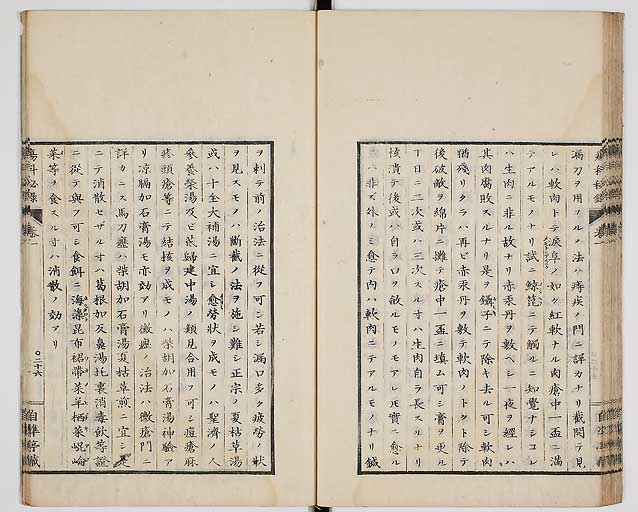 漏刀ヲ用フルノ法ハ痔疾ノ門ニ詳カナリ截開テ見
レハ軟肉トテ ノ如ク紅軟ナル肉瘡中一盃ニ満
テアルモノナリ試ニ鯨 ニテ觸ルニ知覺ナシコレ
ハ生肉ニ非ル故ナリ赤汞丹ヲ敷ヘシ一夜ヲ經レハ
其肉腐敗スルナリ是ヲ鑷子ニテ除キ去ル可シ軟肉
猶殘リタラハ再ヒ赤汞丹ヲ敷テ軟肉ノトクト除テ
後破敵ヲ綿片ニ攤テ瘡中一盃ニ填ム可シ膏ヲ更ル
丁日ニ二次或ハ三次スルオハ生肉自ラ長スルナリ
核潰テ後或ハ自ラ口ヲ斂ルモノモアレ 實ニ愈ル
ニハ非ズ外ノミ愈テ内ハ軟肉ニテアルモノナリ鍼
ヲ刺テ前ノ治法ニ從フ可ン若シ漏口多ク疲勞ノ狀
ヲ見スモノハ斷截ノ法ヲ施シ難シ正宗ノ夏枯草湯
或ハ十全大補湯ニ宜シ愈勞狀ヲ成モノハ聖濟ノ人
參養榮湯及ヒ 歸建中湯ノ類見合用フ可シ痘瘡麻
疹頭瘡等ニテ結核ヲ成モノハ柴胡加石膏湯神驗ア
リ涼膈加石膏湯モ亦効アリ黴癧ノ治法ハ黴瘡門ニ
詳カニス馬刀癧ハ柴胡加石膏湯夏枯草煎ニ宜シ
ニテ消散セザルオハ葛根加反鼻湯托裏消毒飮等證
ニ從テ與フ可シ食餌ニ海藻昆布裙帶菜羊栖菜
菜等ヲ食スルオハ消散ノ効アリ
瘍科秘録 卷一
〇二十六